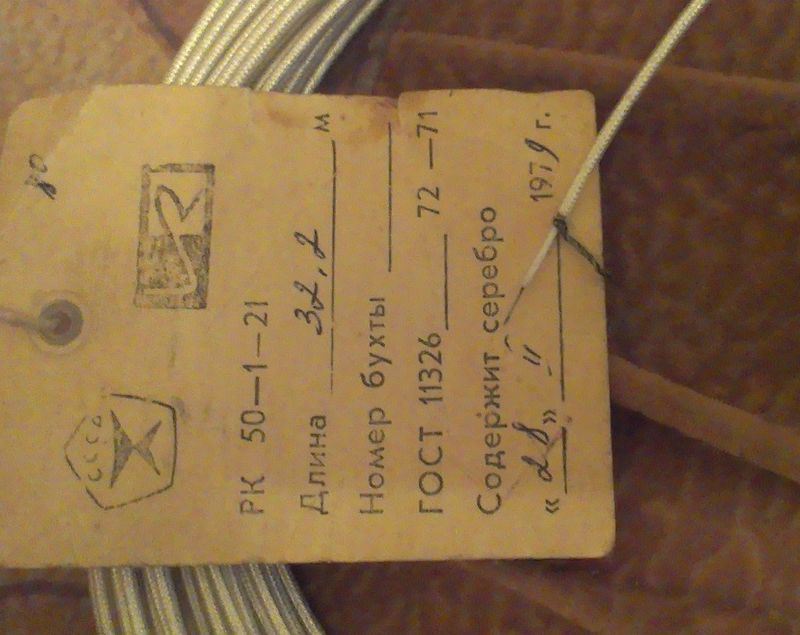 80
СССР
РК 50—1—21
Длина 32,2 м
Номер бухты
ГОСТ 11326 72—71
Содержит серебро
«28» 11 1979 г.